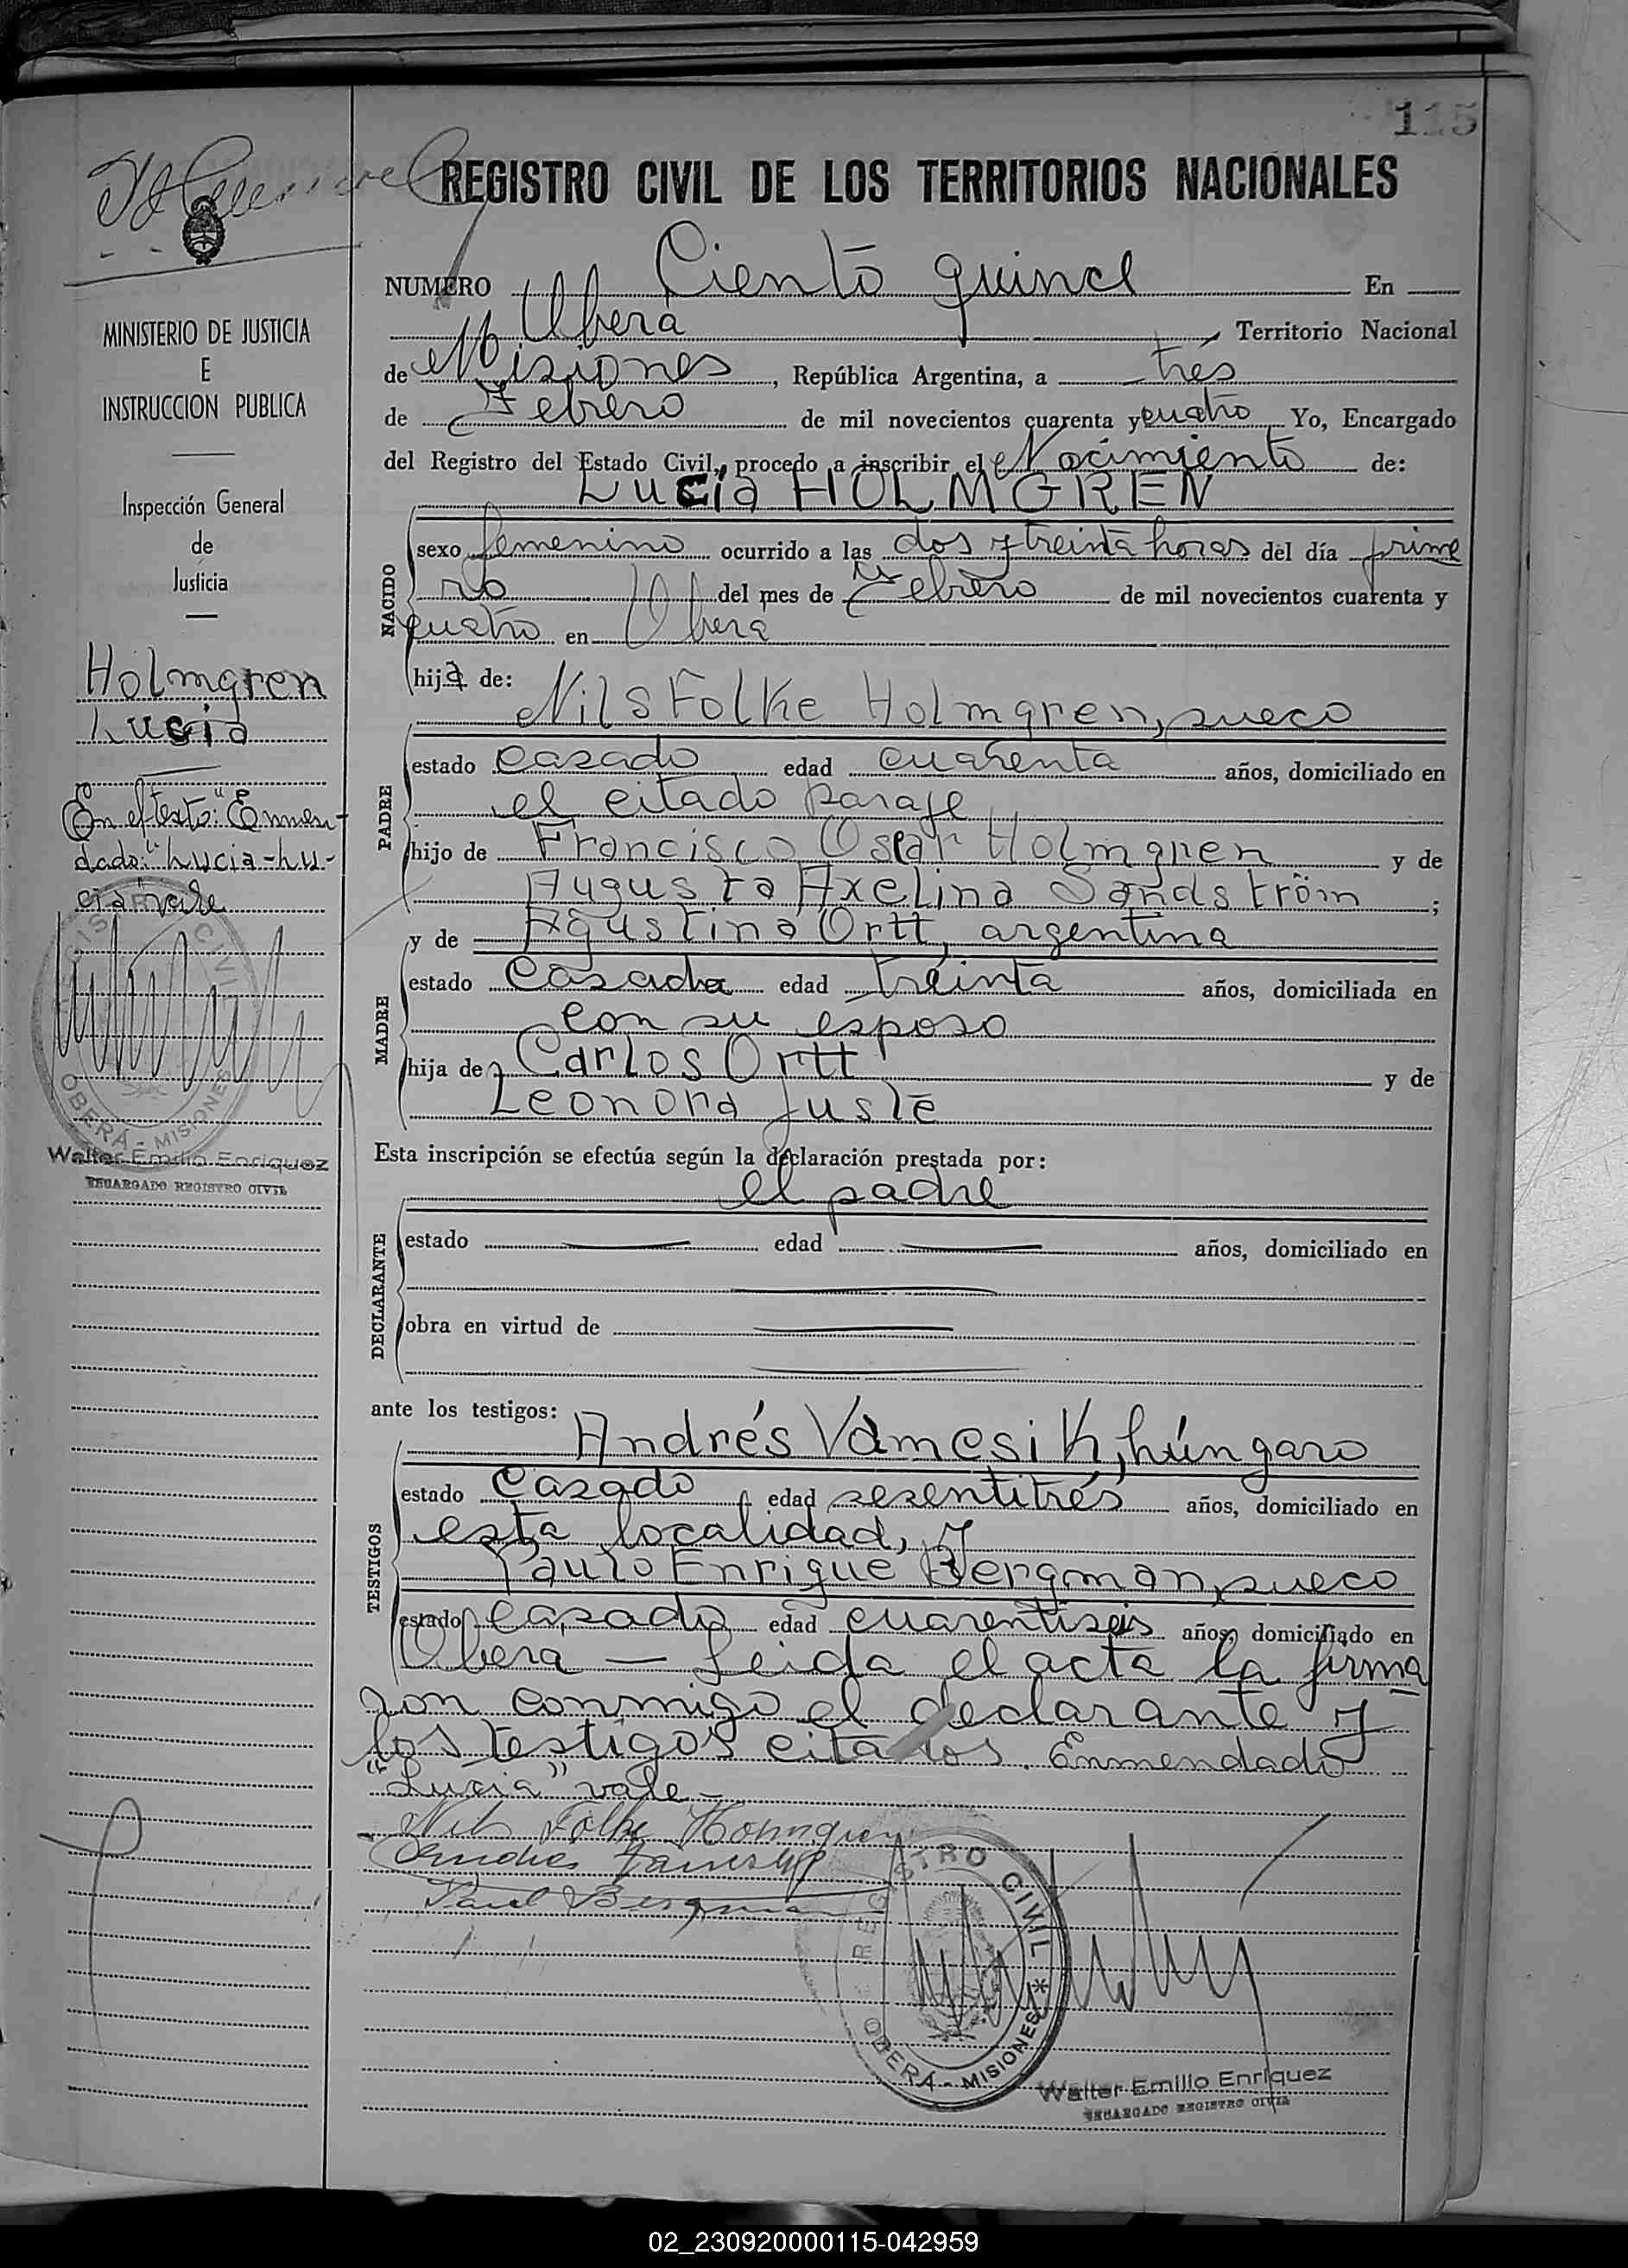 115
REGISTRO CIVIL DE LOS TERRITORIOS NACIONALES
NUMERO Ciento quince En
Oberá, Territorio Nacional
de Misiones, República Argentina, a tres
de Febrero de mil novecientos cuarenta y cuatro Yo, Encargado
del Registro del Estado Civil, procedo a inscribir el Nacimiento de:
Lucia HOLMGREN
NACIDO
sexo femenino ocurrido a las dos y treinta horas del día prime
ro del mes de Febrero de mil novecientos cuarenta y
cuatro en Oberá
hija de:
Nils Folke Holmgren, sueco
PADRE
estado casado edad cuarenta años, domiciliado en
el citado paraje
hijo de Francisco Oscar Holmgren y de
Augusta Axelina Sandström;
y de Agustina Ortt, argentina
MADRE
estado Casada edad treinta años, domiciliada en
con su esposo
hija de Carlos Ortt y de
Leonora Juste
Esta inscripción se efectúa según la declaración prestada por:
el padre
DECLARANTE
estado edad años, domiciliado en
obra en virtud de
ante los testigos:
Andrés Vamesik, húngaro
TESTIGOS
estado Casado edad sesentitrés años, domiciliado en
esta localidad, y
Paulo Enrique Bergman, sueco
estado casado edad cuarentiseis años, domiciliado en
Oberá — Leida el acta la firma
ron conmigo el declarante y
los testigos citados. Enmendado
"Lucia" vale -
Nils Folke Holmgren
Andres
Paul Bergman
REGISTRO CIVIL *
OBERÁ - MISIONES
Walter Emilio Enriquez
ENCARGADO REGISTRO CIVIL
MINISTERIO DE JUSTICIA
E
INSTRUCCION PUBLICA
Inspección General
de
Justicia
Holmgren
Lucia
En el texto: "Enmen-
dado: "Lucia - Lu-
cia" vale
REGISTRO CIVIL
OBERÁ - MISIONES
Walter Emilio Enriquez
ENCARGADO REGISTRO CIVIL
02_230920000115-042959